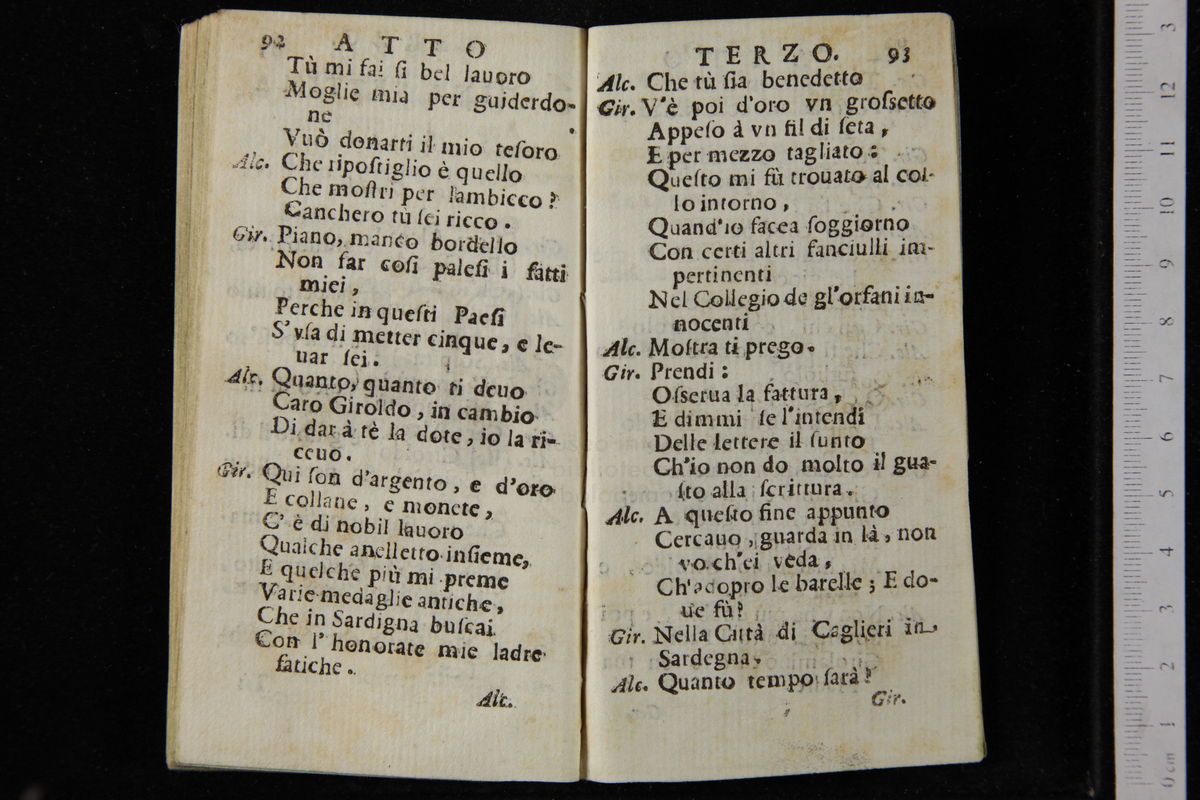 92 ATTO
Tù mi fai ſi bel lauoro
Moglie mia per guiderdo-
ne
Vuò donarti il mio teſoro
Alc. Che ripoſtiglio è quello
Che moſtri per lambicco?
Canchero tù ſei ricco.
Gir. Piano, manco bordello
Non far coſi paleſi i fatti
miei,
Perche in queſti Paeſi
S'vſa di metter cinque, e le-
uar ſei.
Alc. Quanto, quanto ti deuo
Caro Giroldo, in cambio
Di dar à tè la dote, io la ri-
ceuo.
Gir. Qui ſon d'argento, e d'oro
E collane, e monete,
C' è di nobil lauoro
Qualche anelletto inſieme,
E quelche più mi preme
Varie medaglie antiche,
Che in Sardigna buſcai
Con l' honorate mie ladre
fatiche.
Alc.
TERZO. 93
Alc. Che tù ſia benedetto
Gir. V'è poi d'oro vn groſſetto
Appeſo à vn fil di ſeta,
E per mezzo tagliato:
Queſto mi fù trouato al col-
lo intorno,
Quand'io facea ſoggiorno
Con certi altri fanciulli im-
pertinenti
Nel Collegio de gl'orfani in-
nocenti
Alc. Moſtra ti prego.
Gir. Prendi:
Oſſerua la fattura,
E dimmi ſe l'intendi
Delle lettere il ſunto
Ch'io non do molto il gua-
ſto alla ſcrittura.
Alc. A queſto fine appunto
Cercauo, guarda in là, non
vo ch'ei veda,
Ch'adopro le barelle; E do-
ue fù?
Gir. Nella Città di Caglieri in
Sardegna.
Alc. Quanto tempo ſarà?
Gir.
0 cm 1 2 3 4 5 6 7 8 9 10 11 12 3